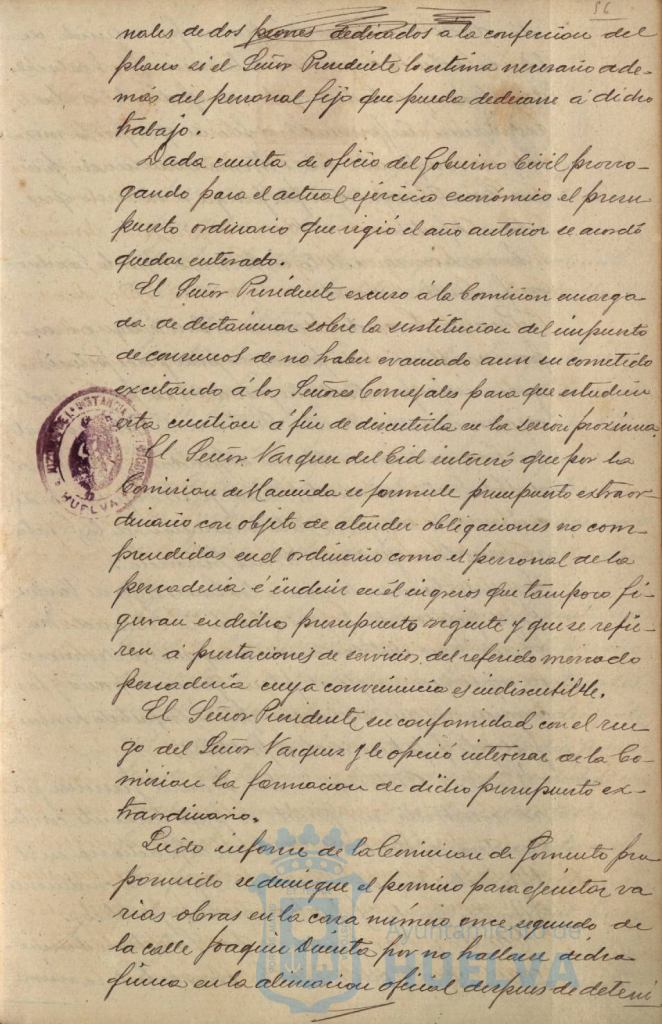 56
nales de dos peones dedicados á la confeccion del
plano si el Señor Presidente lo estima necesario ade-
más del personal fijo que pueda dedicarse á dicho
trabajo.
Dada cuenta de oficio del Gobierno Civil prorro-
gando para el actual ejercicio económico el presu
puesto ordinario que rigió el año anterior se acordó
quedar enterado.
El Señor Presidente excuso á la Comision encarga
da de dictaminar sobre la sustitucion del impuesto
de consumos de no haber evacuado aun su cometido
excitando á los Señores Concejales para que estudien
esta cuestion á fin de discutirla en la sesion proxima.
El Señor Vazquez del Cid interesó que por la
Comision de Hacienda se formule presupuesto extraor-
dinario con objeto de atender obligaciones no com
prendidas en el ordinario como el personal de la
pescaderia é incluir en él ingresos que tampoco fi
guran en dicho presupuesto vigente y que se refie-
ren á prestaciones de servicio, del referido mercado
pescaderia cuya conveniencia es indiscutible.
El Señor Presidente su conformidad con el rue-
go del Señor Vazquez y le ofreció interesar de la Co-
mision la formacion de dicho presupuesto ex-
traordinario.
Leido informe de la Comision de Fomento pro
poniendo se deniegue el permiso para ejecutar va
rias obras en la casa número once segundo de
la calle Joaquin por no hallarse dicha
finca en la alineacion oficial despues de deteni
HUELVA
Ayuntamiento de
HUELVA